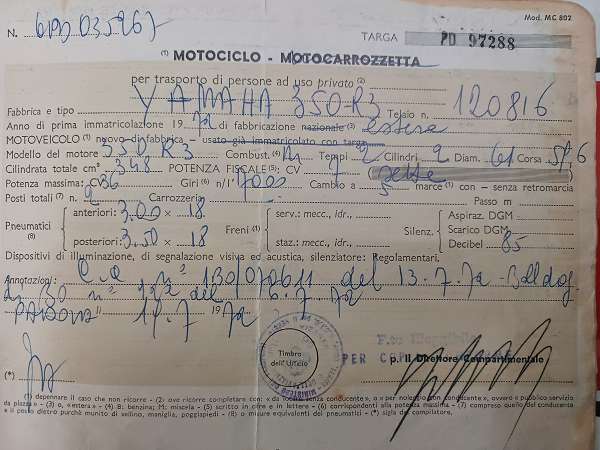 Mod. MC 802
N. TARGA PD 97288
(1) MOTOCICLO - MOTOCARROZZETTA
per trasporto di persone ad uso privato (2)
Fabbrica e tipo YAMAHA 350-R3 Telaio n. 120816
Anno di prima immatricolazione 19 72 di fabbricazione nazionale (3) estera
MOTOVEICOLO (1) nuovo di fabbrica - usato già immatricolato con targa
Modello del motore R3 Combust. (4) M Tempi 2 Cilindri 2 Diam. 61 Corsa 59,6
Cilindrata totale cm³ 348 POTENZA FISCALE (5): CV 7 ( sette )
Potenza massima: CV 36 Giri (6) n/1' 7000 Cambio a 5 marce (1) con - senza retromarcia
Posti totali (7) n. 2 Carrozzeria Passo m
Pneumatici (8) anteriori: 3.00 x 18 Freni (1) serv.: mecc., idr., Silenz. Aspiraz. DGM
Scarico DGM
posteriori: 3.50 x 18 staz.: mecc., idr., Decibel 85
Dispositivi di illuminazione, di segnalazione visiva ed acustica, silenziatore: Regolamentari.
Annotazioni: n° del 13.7.72
n° del 6.7.72
PADOVA 19 72
Timbro
dell'Ufficio
PER COP
p. Il Direttore Compartimentale
(*)
(1) depennare il caso che non ricorre - (2) ove ricorre completare con: « da nolo senza conducente », o « per noleggio con conducente », ovvero « pubblico servizio
da piazza » - (3) o, « estera » - (4) B: benzina; M: miscela - (5) scritto in cifre e in lettere - (6) corrispondenti alla potenza massima - (7) compreso quello del conducente
e il posto dietro purché munito di sellino, maniglia, poggiapiedi - (8) o misure equivalenti dei pneumatici - (*) sigla del compilatore.